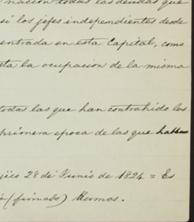 nacion todas las deudas que
si los jefes independientes desde
entrada en esta Capital, como
ta la ocupacion de la misma
todas las que han contraido los
primera epoca de las que habla
jico 28 de Junio de 1824 = Es
(firmado) Llermos.